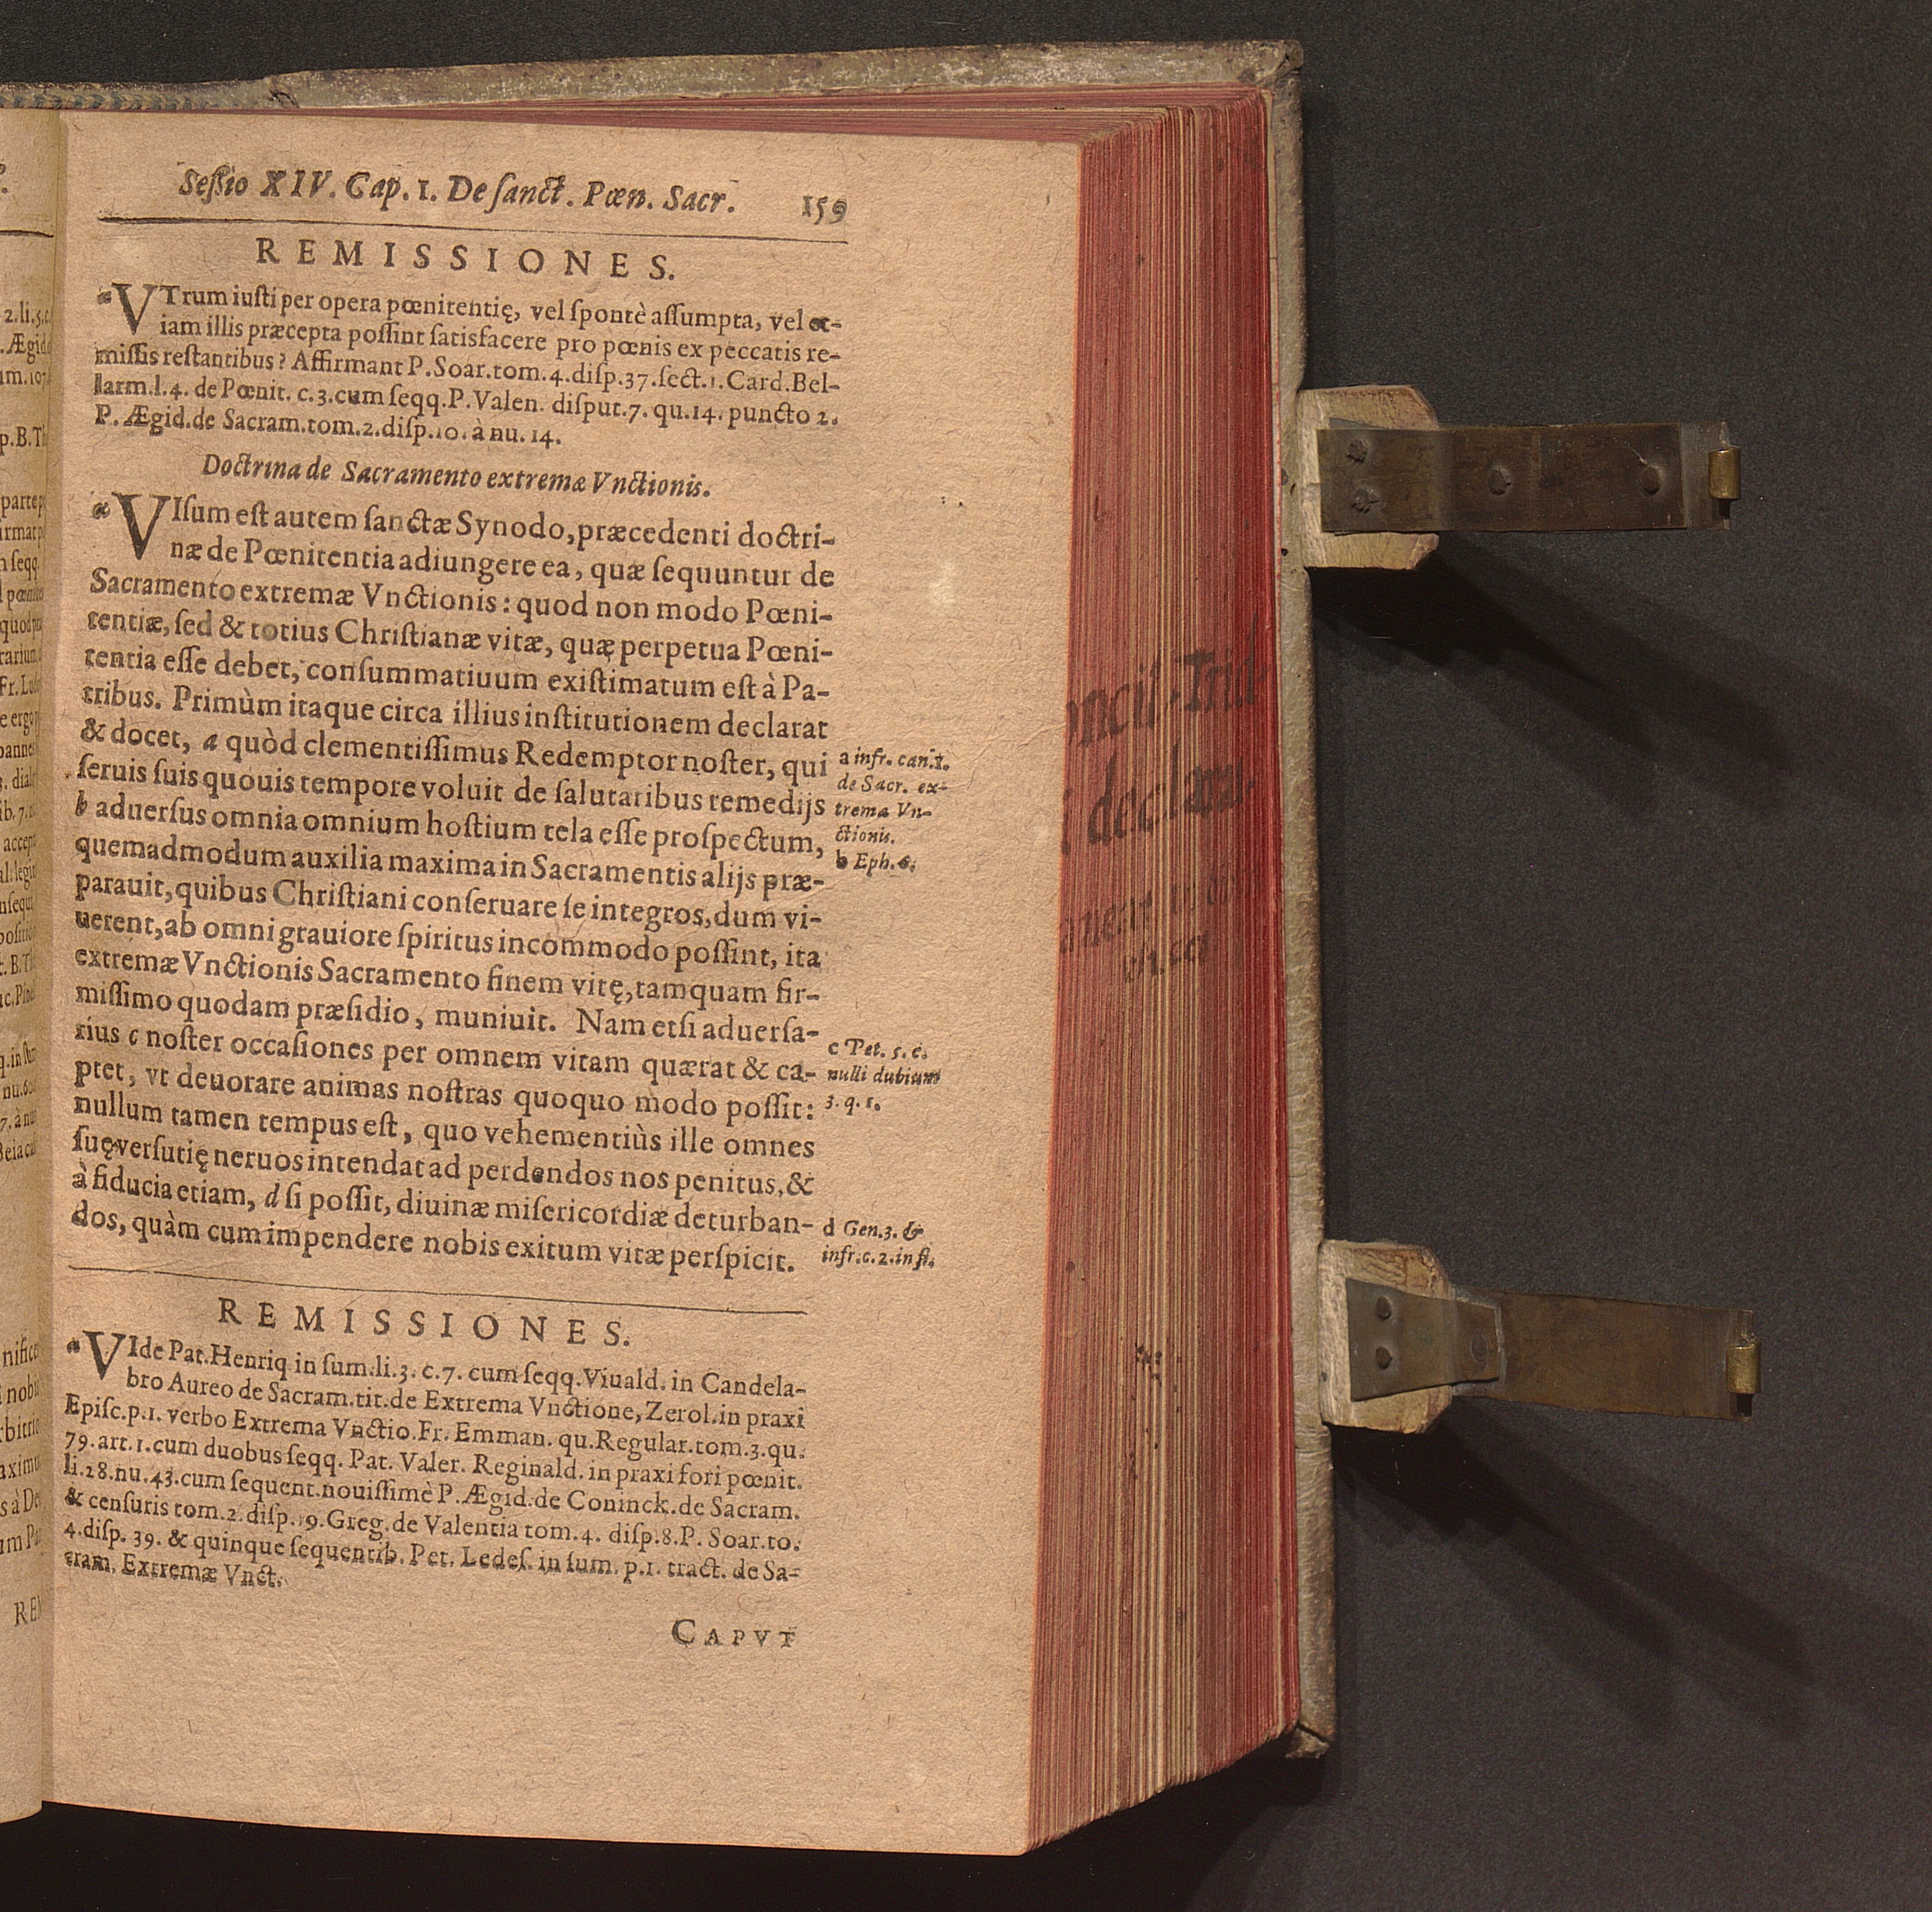 Seſſio XIV. Cap. I. De ſanct. Pœn. Sacr. 159
REMISSIONES.
a VTrum iuſti per opera pœnitentię, vel ſpontè aſſumpta, vel et-
iam illis præcepta poſſint ſatisfacere pro pœnis ex peccatis re-
miſſis reſtantibus? Affirmant P. Soar. tom. 4. diſp. 37. ſect. 1. Card. Bel-
larm. l. 4. de Pœnit. c. 3. cum ſeqq. P. Valen. diſput. 7. qu. 14. puncto 2.
P. Ægid. de Sacram. tom. 2. diſp. 10. à nu. 14.
Doctrina de Sacramento extremæ Vnctionis.
a VIſum eſt autem ſanctæ Synodo, præcedenti doctri-
næ de Pœnitentia adiungere ea, quæ ſequuntur de
Sacramento extremæ Vnctionis: quod non modo Pœni-
tentiæ, ſed & totius Chriſtianæ vitæ, quæ perpetua Pœni-
tentia eſſe debet, conſummatiuum exiſtimatum eſt à Pa-
tribus. Primùm itaque circa illius inſtitutionem declarat
& docet, a quòd clementiſſimus Redemptor noſter, qui
ſeruis ſuis quouis tempore voluit de ſalutaribus remedijs
b aduerſus omnia omnium hoſtium tela eſſe proſpectum,
quemadmodum auxilia maxima in Sacramentis alijs præ-
parauit, quibus Chriſtiani conſeruare ſe integros, dum vi-
uerent, ab omni grauiore ſpiritus incommodo poſſint, ita
extremæ Vnctionis Sacramento finem vitę, tamquam fir-
miſſimo quodam præſidio, muniuit. Nam etſi aduerſa-
rius c noſter occaſiones per omnem vitam quærat & ca-
ptet, vt deuorare animas noſtras quoquo modo poſſit:
nullum tamen tempus eſt, quo vehementiùs ille omnes
ſuę verſutię neruos intendat ad perdendos nos penitus, &
à fiducia etiam, d ſi poſſit, diuinæ miſericordiæ deturban-
dos, quàm cum impendere nobis exitum vitæ perſpicit.
a infr. can. 1.
de Sacr. ex-
trema Vn-
ctionis.
b Eph. 6.
c Pet. 5. c.
nulli dubium
3. q. 1.
d Gen. 3. &
infr. c. 2. in fi.
REMISSIONES.
a VIde Pat. Henriq. in ſum. li. 3. c. 7. cum ſeqq. Viuald. in Candela-
bro Aureo de Sacram. tit. de Extrema Vnctione, Zerol. in praxi
Epiſc. p. 1. verbo Extrema Vnctio. Fr. Emman. qu. Regular. tom. 3. qu.
79. art. 1. cum duobus ſeqq. Pat. Valer. Reginald. in praxi fori pœnit.
li. 28. nu. 43. cum ſequent. nouiſſimè P. Ægid. de Coninck. de Sacram.
& cenſuris tom. 2. diſp. 19. Greg. de Valentia tom. 4. diſp. 8. P. Soar. to.
4. diſp. 39. & quinque ſequentib. Pet. Ledeſ. in ſum. p. 1. tract. de Sa-
cram. Extremæ Vnct.
CAPVT